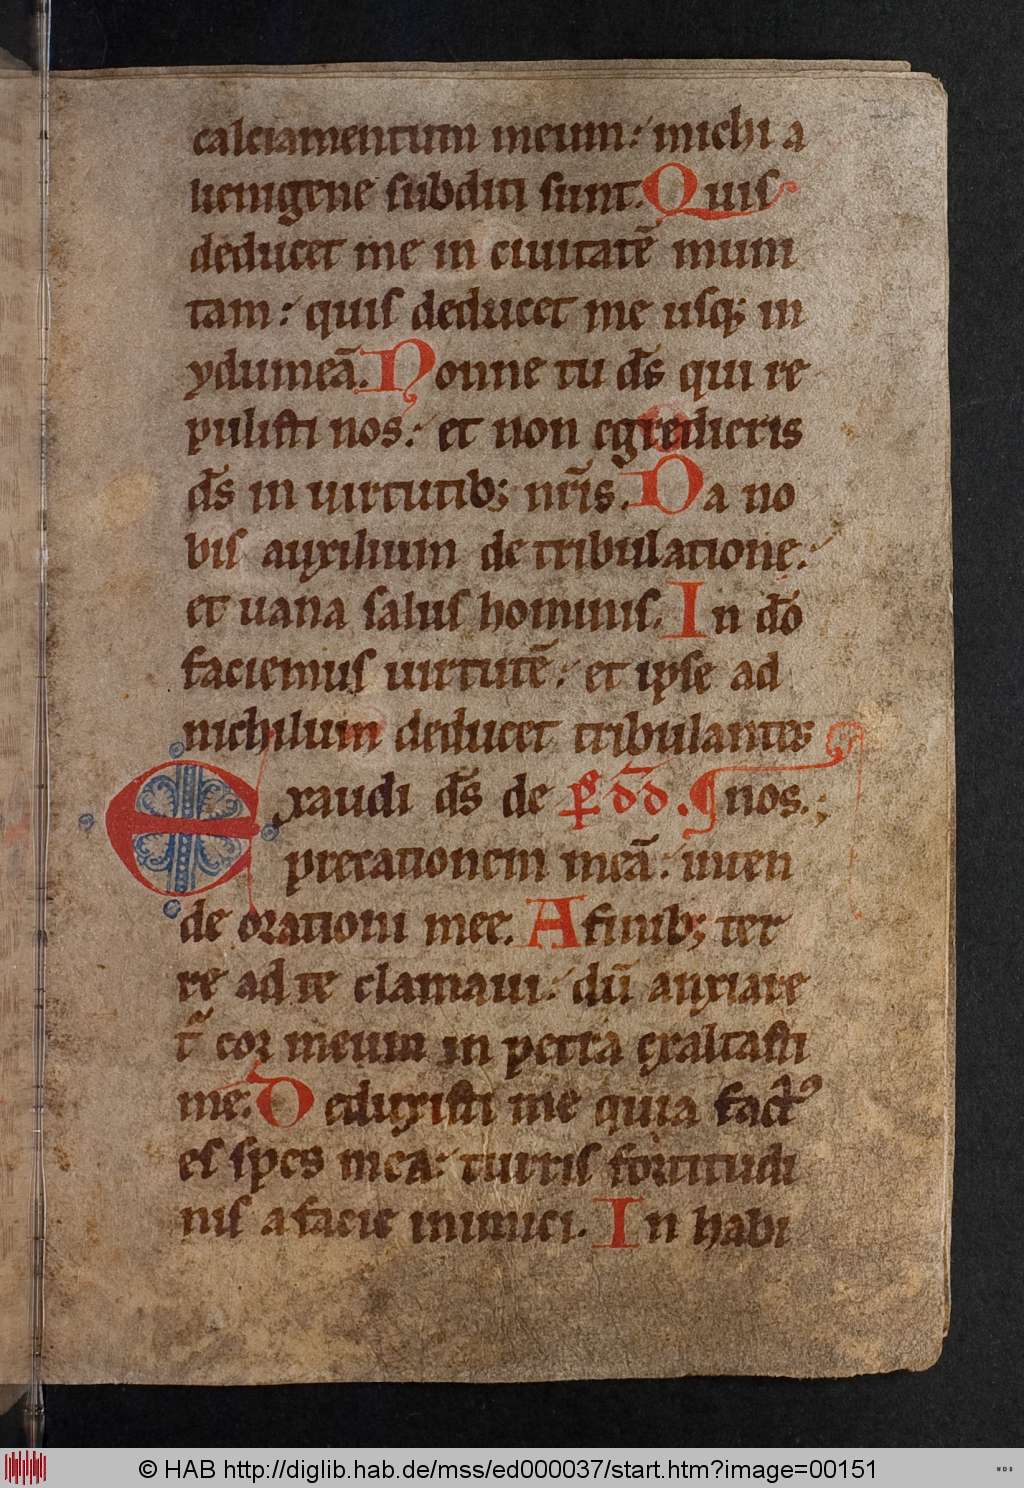 calciamentum meum: michi a
lienigene subditi sunt. Quis
deducet me in ciuitatē muni
tam: quis deducet me usq; in
ydumeā. Nonne tu d̄s qui re
pulisti nos: et non egredieris
d̄s in uirtutib; nr̄is. Da no
bis auxilium de tribulatione:
et uana salus hominis. In dō
faciemus uirtutē: et ipse ad
nichilum deducet tribulantes
Exaudi d̄s de p̱ dd. ¶ nos.;
precationem meā: inten
de orationi mee. A finib; ter
re ad te clamaui: dū anxiare
t᷑ cor meum in petra exaltasti
me: Deduxisti me quia fact᷒
es spes mea: turris fortitudi
nis a facie inimici. In habi
© HAB http://diglib.hab.de/mss/ed000037/start.htm?image=00151